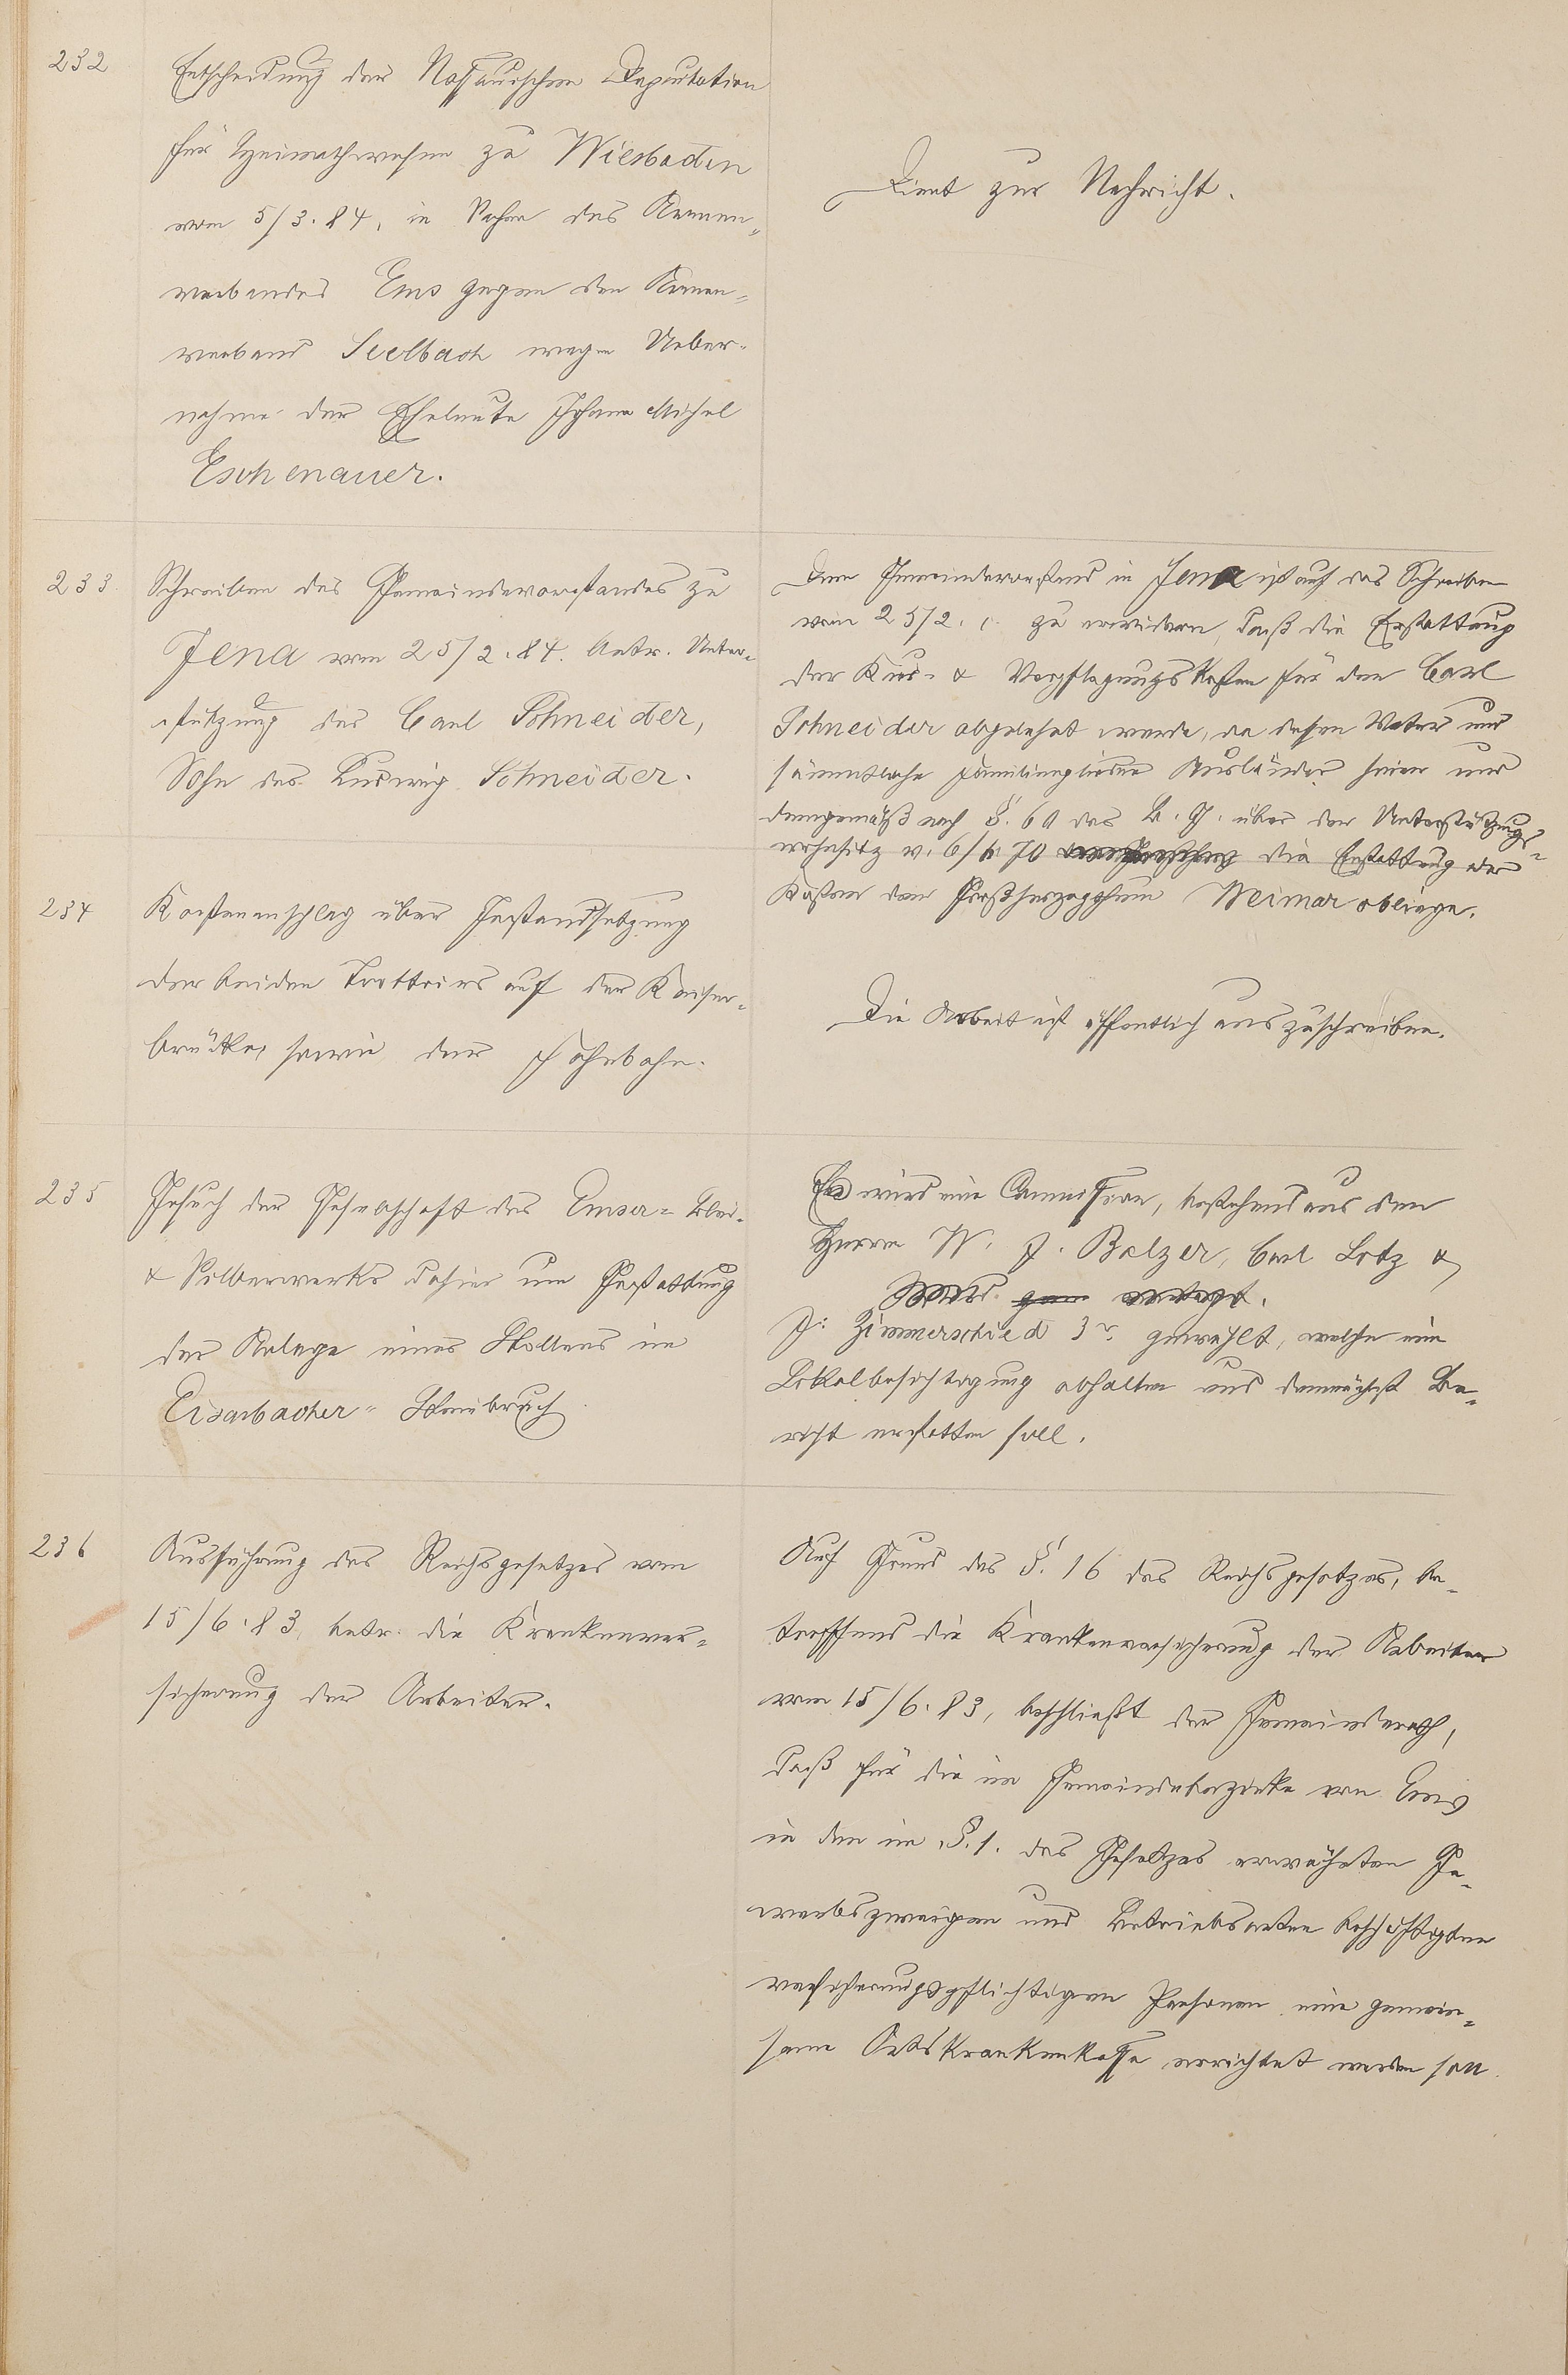 232
Entscheidung der Nassauischen Deputation
für Heimathwesen zu Wiesbaden
vom 5/3.84, in Sachen des Armen-
verbandes Ems gegen den Armen-
verband Seelbach wegen Ueber-
nahme der Eheleute Johann Michel
Eschenauer.
Dient zur Nachricht.
233
Schreiben des Gemeindevorstandes zu
Jena vom 25/2.84. betr. Unter-
stützung des Carl Schneider,
Sohn des Ludwig Schneider.
Dem Gemeindevorstand in Jena ist auf das Schreiben
vom 25/2. c. zu erwidern, daß die Erstattung
der Kur- & Verpflegungskosten für den Carl
Schneider abgelehnt werde, da dessen Vater und
sämmtliche Familienglieder Ausländer seien und
demgemäß nach §. 60 des B. G. über den Unterstützungs-
wohnsitz v. 6/6 70 die Erstattung der
Kosten dem Großherzogthum Weimar obliege.
234
Kostenanschlag über Instandsetzung
der beiden Trottoirs auf der Kaiser-
brücke, sowie der Fahrbahn.
Die Arbeit ist öffentlich auszuschreiben.
235
Gesuch der Gesellschaft des Emser-Blei-
& Silberwerks dahier um Gestattung
der Anlage eines Stollens im
Ersarbacher-Steinbruch
Es wird eine Commission, bestehend aus den
Herrn W. J. Balzer, Carl Lotz &
J: Zimmerschied 3r. gewählt, welche eine
Lokalbesichtigung abhalten und demnächst Be-
richt erstatten soll.
236
Ausführung des Reichsgesetzes vom
15/6.83, betr. die Krankenver-
sicherung der Arbeiter.
Auf Grund des §. 16 des Reichsgesetzes, be-
treffend die Krankenversicherung der Arbeiter
vom 15/6.83, beschließt der Gemeinderath,
daß für die im Gemeindebezirke von Ems
in den im §. 1. des Gesetzes erwähnten Ge-
werbszweigen und Betriebsarten beschäftigten
versicherungspflichtigen Personen eine gemein-
same Ortskrankenkasse errichtet werden soll.